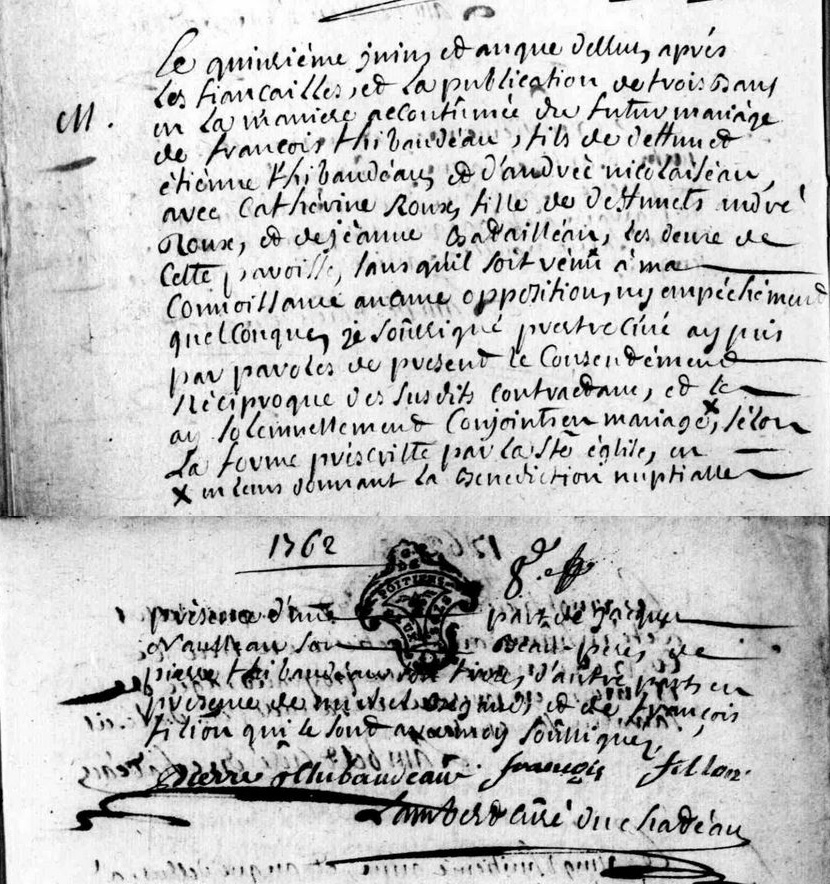 Le quinzième juin, et an que dessus, aprés
les fiançailles, et la publication de trois Bans
M. en la maniere accoutumée du futur mariage
de françois thibaudeau, fils de deffunct
étienne thibaudeau, et d'andreé nicolaiseau,
avec Cathérine Roux, fille de deffuncts andré
Roux, et de jeanne Batailleau, les deux de
Cette paroisse, sans qu'il soit venû à ma
Connoissance aucune opposition, ny empéchément
quelConque, je soûssigné prestre Curé ay pris
par paroles de present le Consentément
Réciproque des susdits contractans, et le
ay solemnellement Conjoints en mariage, sélon
La forme préscritte par la Ste église, en
x en leur donnant la Benediction nuptialle
1762
G. DE POITIERS
présence d'une part, de jacque
son Beau-père, de
pierre thibaudeau son d'autre part, en
présence de et de françois
fillon qui se sont avec moy soûssignez
Pierre thibaudeau françois fillon
Lambert Curé du chadéau